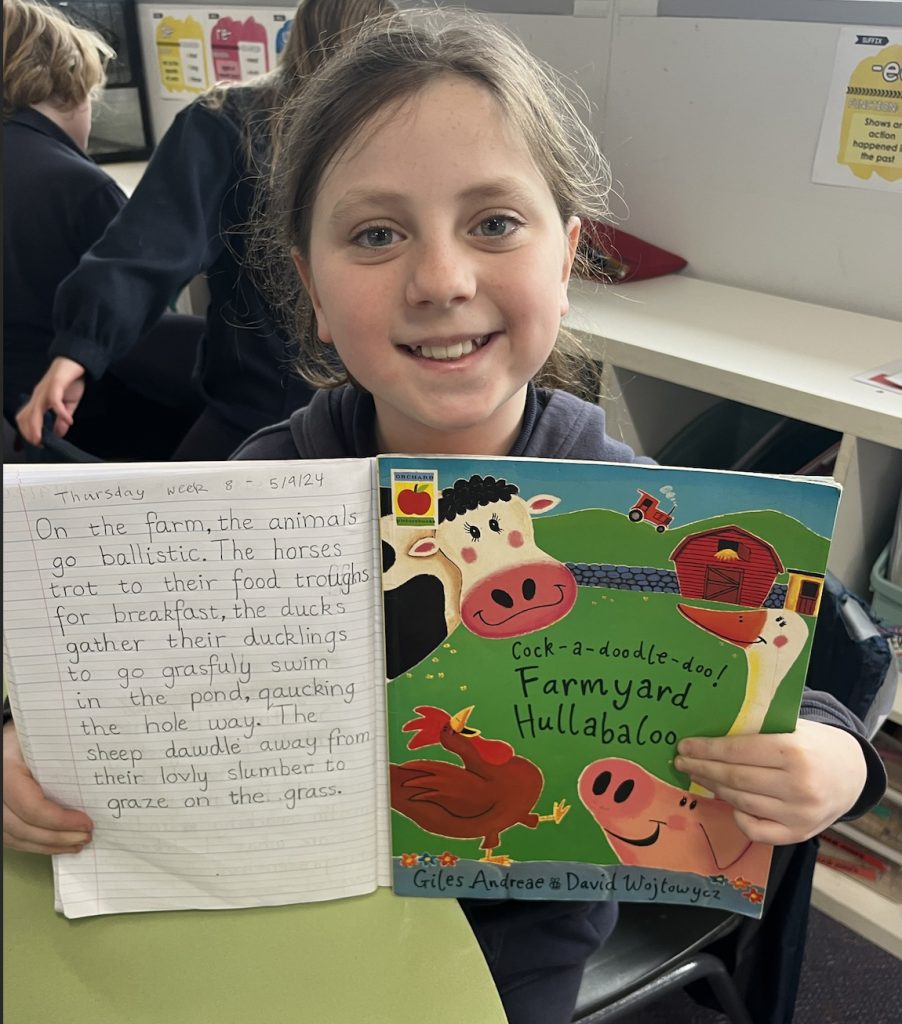 Thursday week 8 - 5/9/24
On the farm, the animals
go ballistic. The horses
trot to their food troughs
for breakfast, the ducks
gather their ducklings
to go grasfuly swim
in the pond, qaucking
the hole way. The
sheep dawdle away from
their lovly slumber to
graze on the grass.
ORCHARD
Cock-a-doodle-doo!
Farmyard
Hullabaloo
Giles Andreae & David Wojtowycz
re-
SUFFIX
FUNCTION:
Shows an
action
happened in
the past